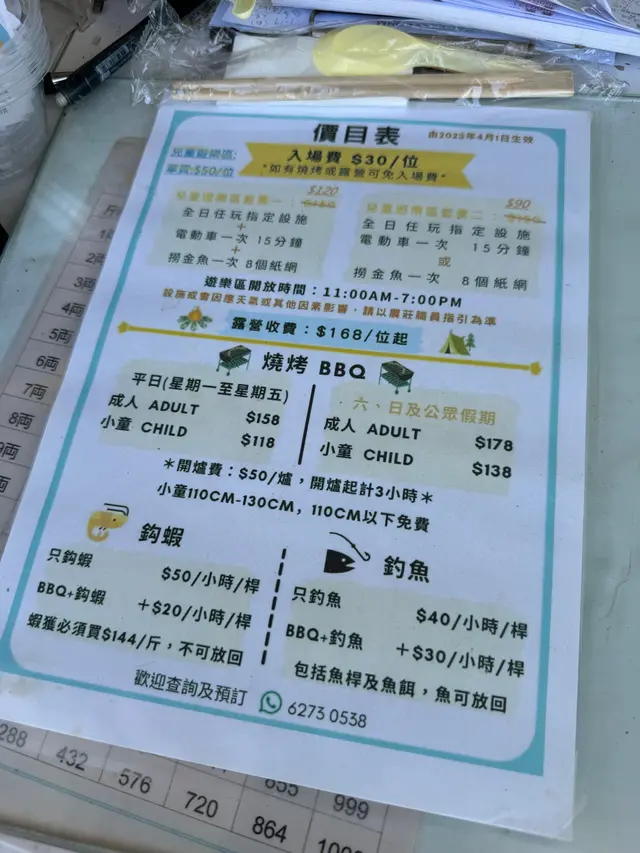 價目表
由2025年4月1日生效
兒童遊樂區:
單買:$50/位
入場費 $30/位
*如有燒烤或露營可免入場費*
兒童遊樂區套票一:
$120
全日任玩指定設施
+
電動車一次 15分鐘
+
撈金魚一次 8個紙網
兒童遊樂區套票二:
$90
全日任玩指定設施
電動車一次 15分鐘
或
撈金魚一次 8個紙網
遊樂區開放時間:11:00AM-7:00PM
設施或會因應天氣或其他因素影響,請以農莊職員指引為準
露營收費:$168/位起
燒烤 BBQ
平日(星期一至星期五)
成人 ADULT $158
小童 CHILD $118
六、日及公眾假期
成人 ADULT $178
小童 CHILD $138
*開爐費:$50/爐,開爐起計3小時*
小童110CM-130CM, 110CM以下免費
鈎蝦
只鈎蝦 $50/小時/桿
BBQ+鈎蝦 +$20/小時/桿
蝦獲必須買$144/斤,不可放回
釣魚
只釣魚 $40/小時/桿
BBQ+釣魚 +$30/小時/桿
包括魚桿及魚餌,魚可放回
歡迎查詢及預訂 6273 0538
2両
3両
4両
5両
6両
7両
8両
288
432
576
720
864
999